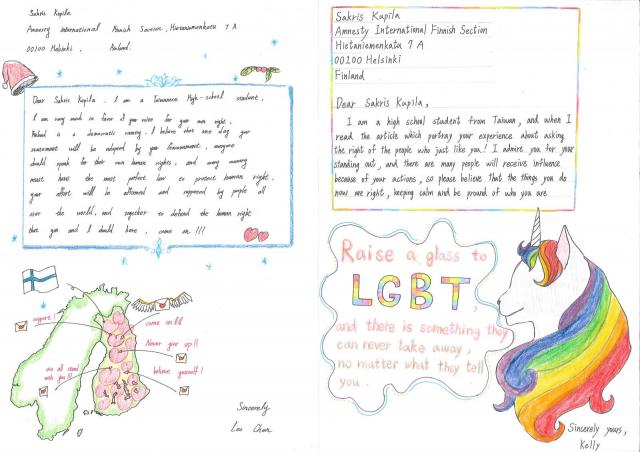 Sakris Kupila
Amnesty International Finnish Section, Hietaniemenkatu 7 A
00100 Helsinki, Finland.
Dear Sakris Kupila. I am a Taiwanese High-school student.
I am very much in favor of you voice for your own right.
Finland is a democratic country. I believe that one day your
statement will be adopted by your Government. everyone
should speak for their own human rights, and every country
must have the most perfect law to protect human right.
your effort will be affirmed and supposed by people all
over the world, and together to defend the human right
that you and I should have. come on !!!
support!
come on !!!
Never give up !!
believe yourself!
we all stand
with you !!!
Sincerely
Lau Chan
Sakris Kupila
Amnesty International Finnish Section
Hietaniemenkatu 7 A
00100 Helsinki
Finland
Dear Sakris Kupila,
I am a high school student from Taiwan, and when I
read the article which portray your experience about asking
the right of the people who just like you! I admire you for your
standing out, and there are many people will receive influence
because of your actions, so please believe that the things you do
now are right, keeping calm and be pround of who you are
Raise a glass to
LGBT,
and there is something they
can never take away,
no matter what they tell
you.
Sincerely yours,
Kelly